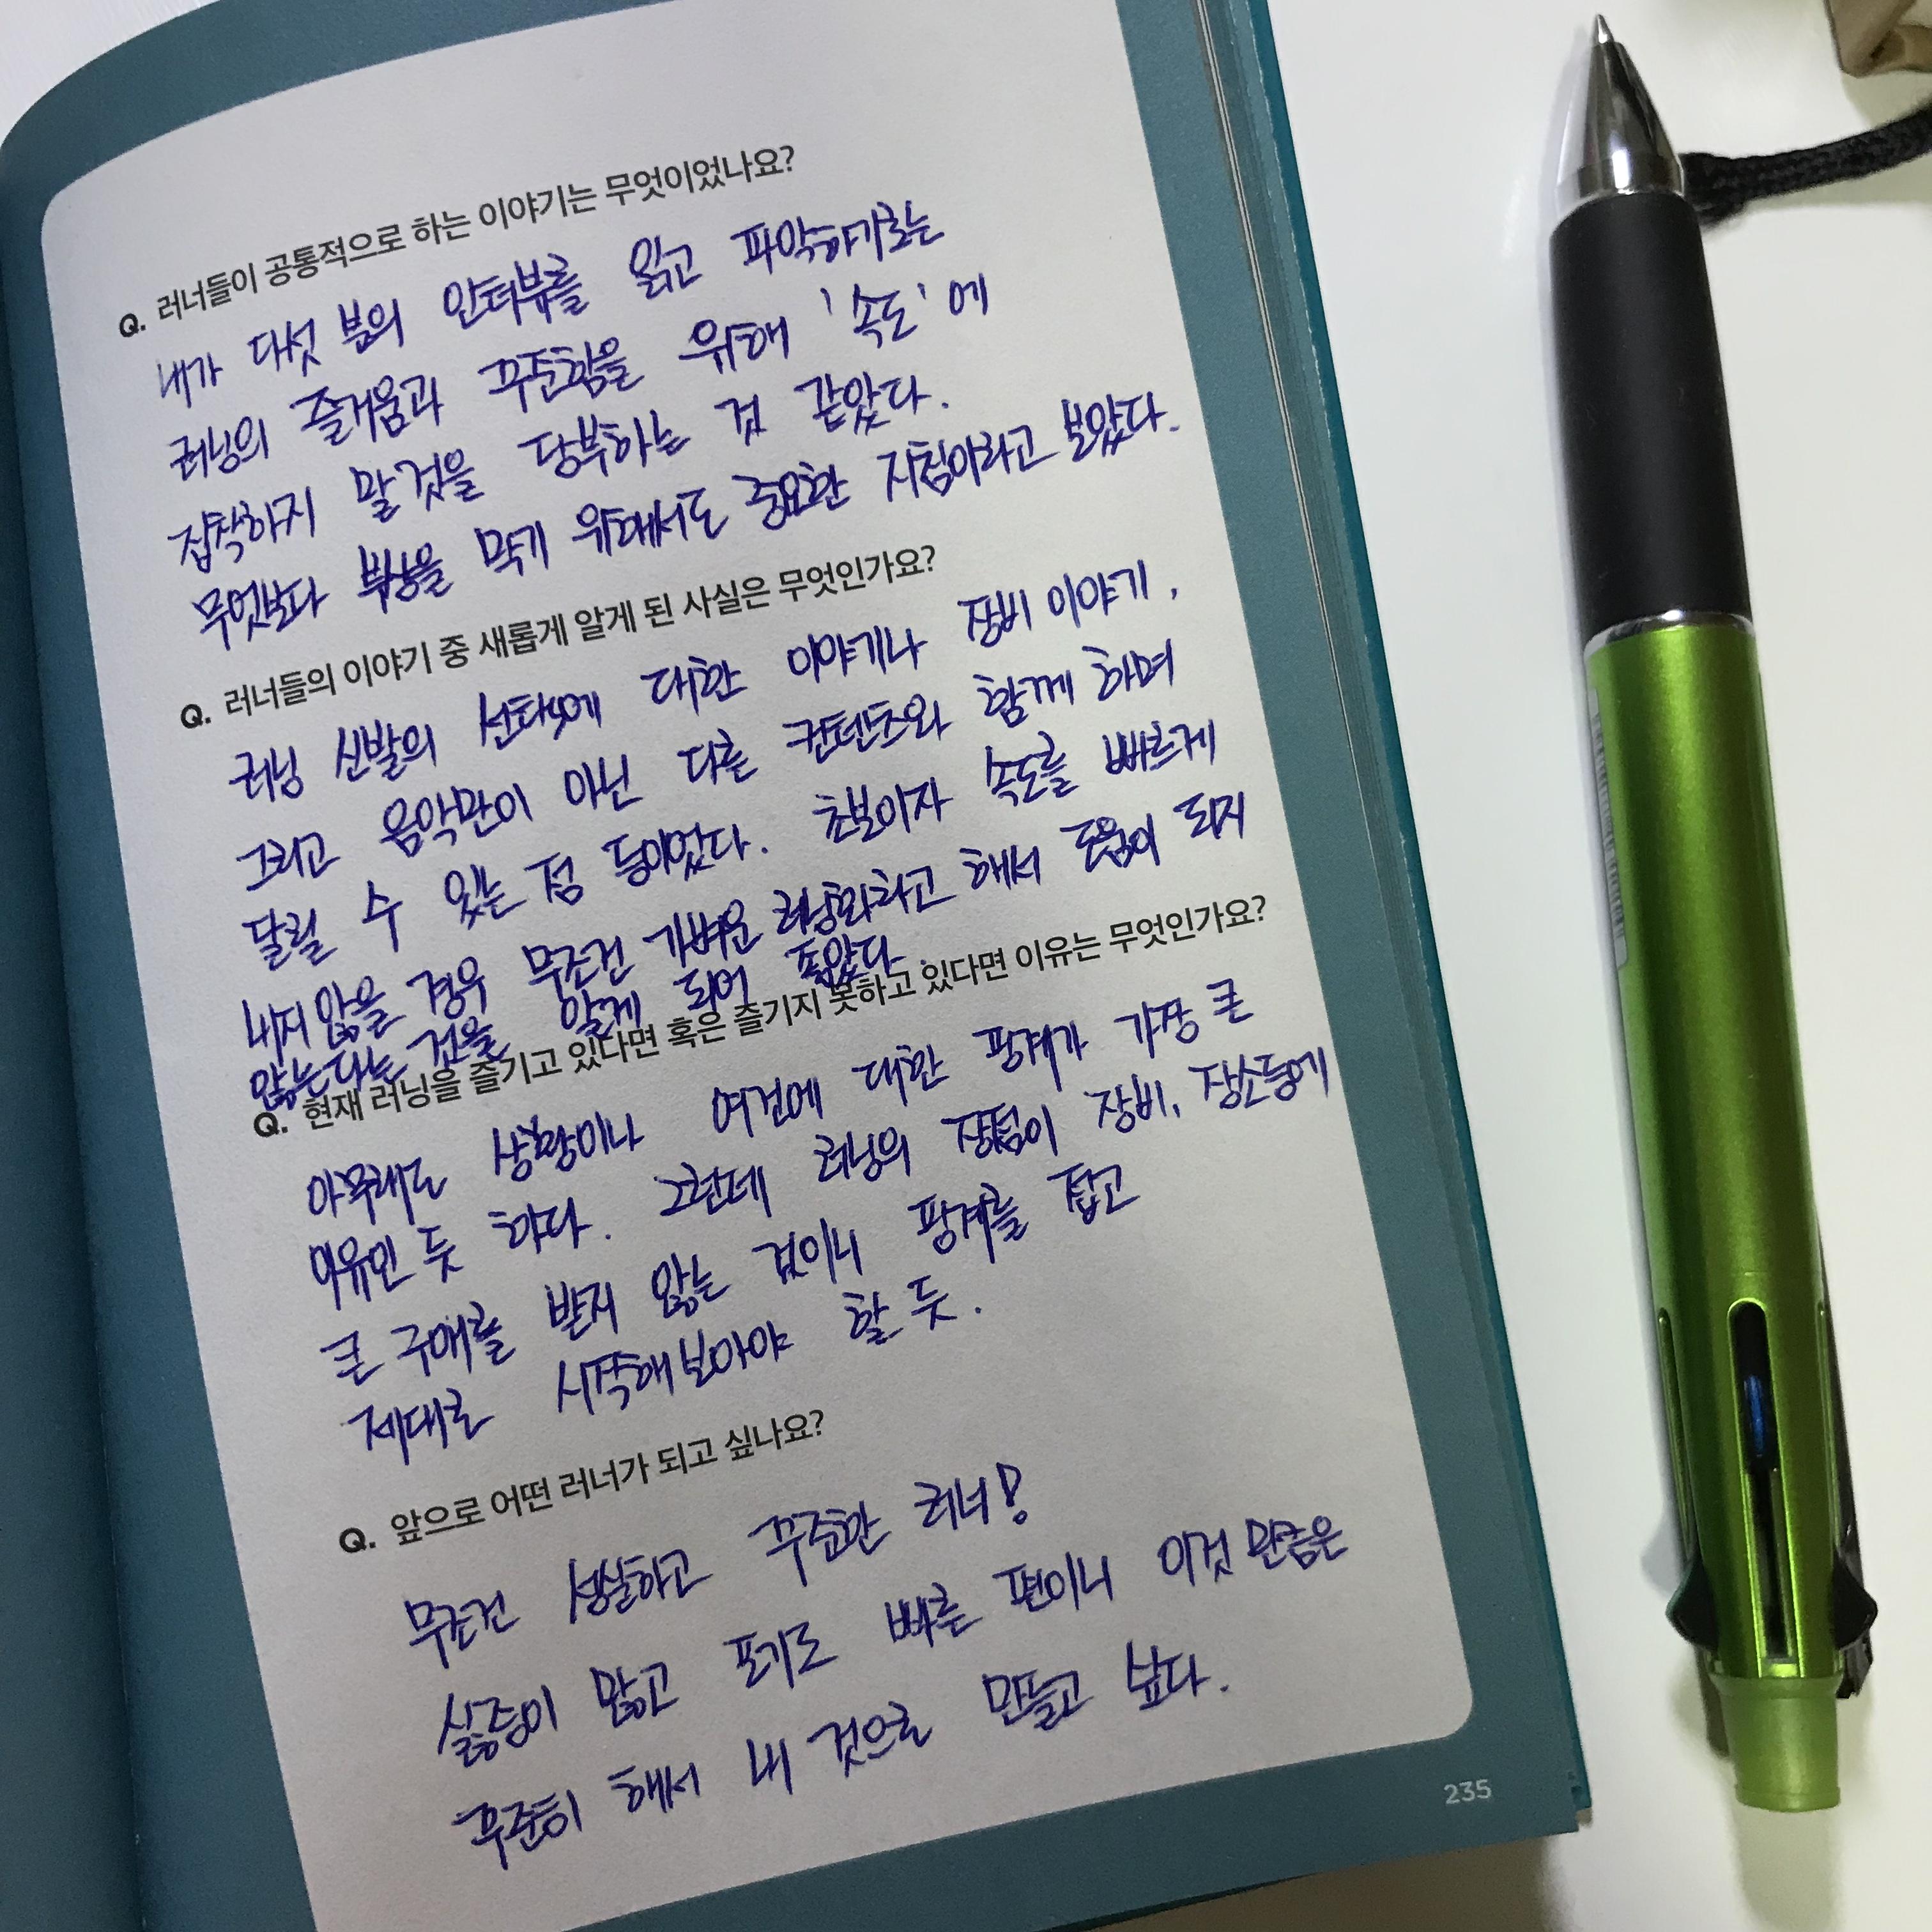 Q. 러너들이 공통적으로 하는 이야기는 무엇이었나요?
내가 다섯 분의 인터뷰를 읽고 파악하기로는
러닝의 즐거움과 꾸준함을 위해 '속도'에
집착하지 말것을 당부하는 것 같았다.
무엇보다 부상을 막기 위해서도 중요한 지침이라고 보았다.
Q. 러너들의 이야기 중 새롭게 알게 된 사실은 무엇인가요?
러닝 신발의 선택에 대한 이야기나 장비 이야기,
그리고 음악만이 아닌 다른 컨텐츠와 함께 하며
달릴 수 있는 점 등이었다. 초보이자 속도를 빠르게
내지 않을 경우 무조건 가벼운 러닝화라고 해서 도움이 되지
않는다는 것을 알게 되어 좋았다.
Q. 현재 러닝을 즐기고 있다면 혹은 즐기지 못하고 있다면 이유는 무엇인가요?
아무래도 상황이나 여건에 대한 핑계가 가장 큰
이유인 듯 하다. 그런데 러닝의 장점이 장비, 장소등에
큰 구애를 받지 않는 것이니 핑계를 접고
제대로 시작해보아야 할 듯.
Q. 앞으로 어떤 러너가 되고 싶나요?
무조건 성실하고 꾸준한 러너!
싫증이 많고 포기도 빠른 편이니 이것 만큼은
꾸준히 해서 내 것으로 만들고 싶다.
235